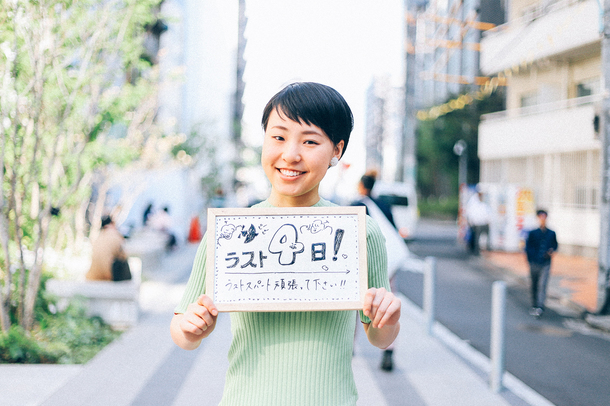 ラスト4日!
ラストスパート頑張って下さい!!